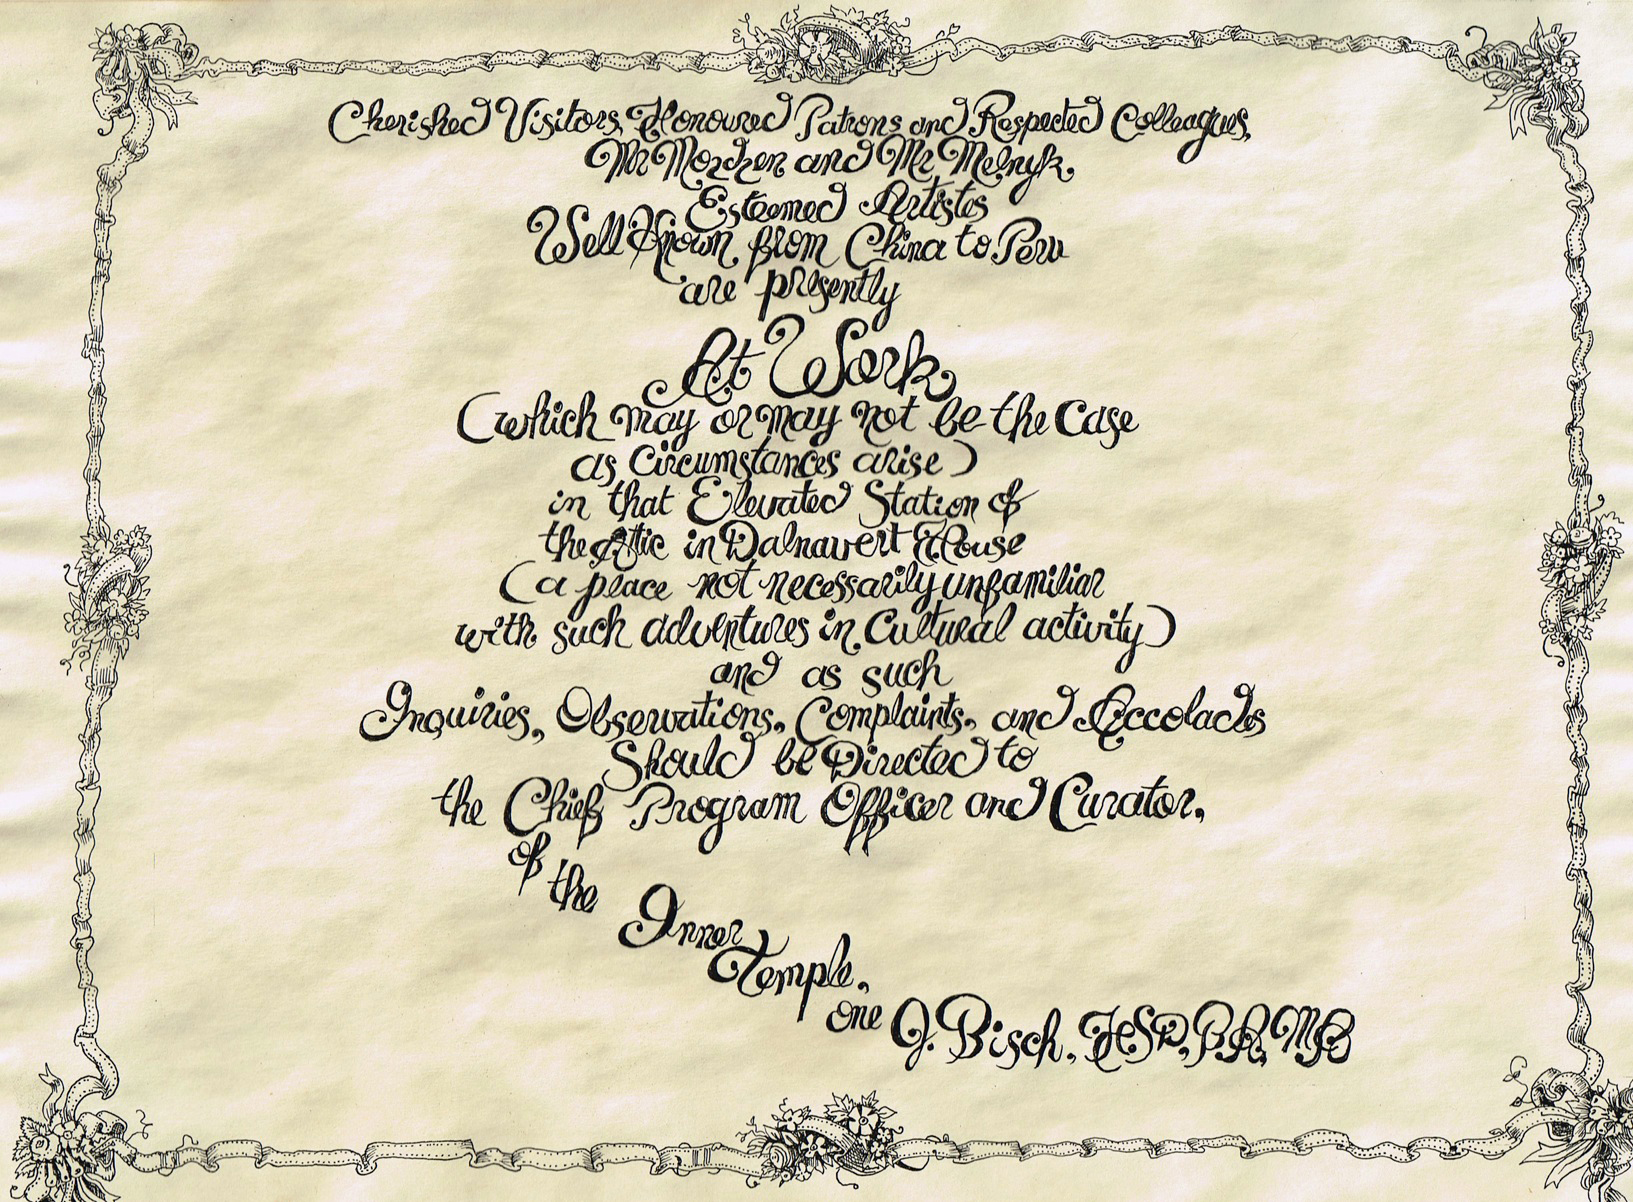 Cherished Visitors, Honoured Patrons and Respected Colleagues,
Mr Morchen and Mr Melnyk,
Esteemed Artistes
Well Known from China to Peru
are presently
At Work
(which may or may not be the case
as circumstances arise)
in that Elevated Station of
the Attic in Dalnavert House
(a place not necessarily unfamiliar
with such adventures in Cultural activity)
and as such
Inquiries, Observations, Complaints, and Accolades
Should be Directed to
the Chief Program Officer and Curator,
of the
Inner
Temple,
one J. Bisch, HSD, BA, MB